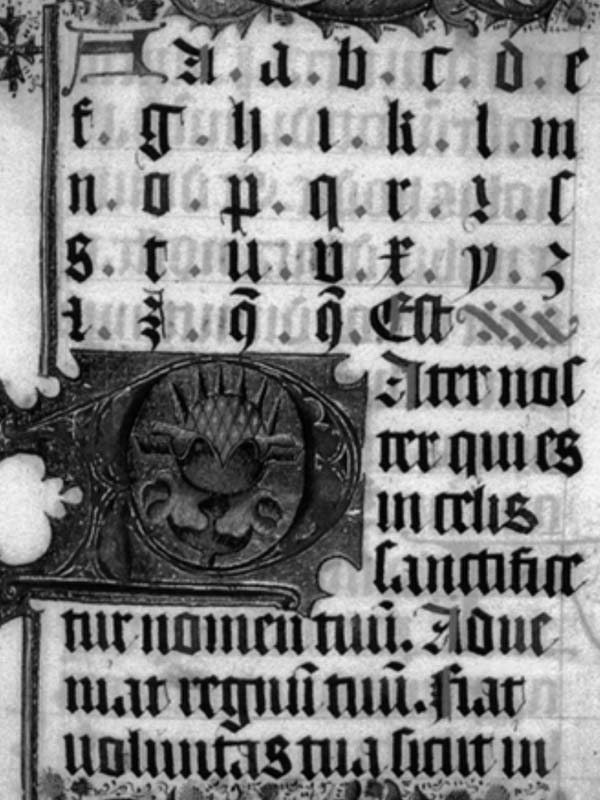 A A . a . b . c . d . e
f . g . h . i . k . l . m
n . o . p . q . r . ꝛ . ſ
s . t . u . v . x . y . z
ꝛ . ꝫ . ꝯ . ꝯ . Est
Ater noſ
ter qui es
in celis
ſanctifice
tur nomen tuū. Adue
niat regnū tuū. Fiat
uoluntas tua ſicut in